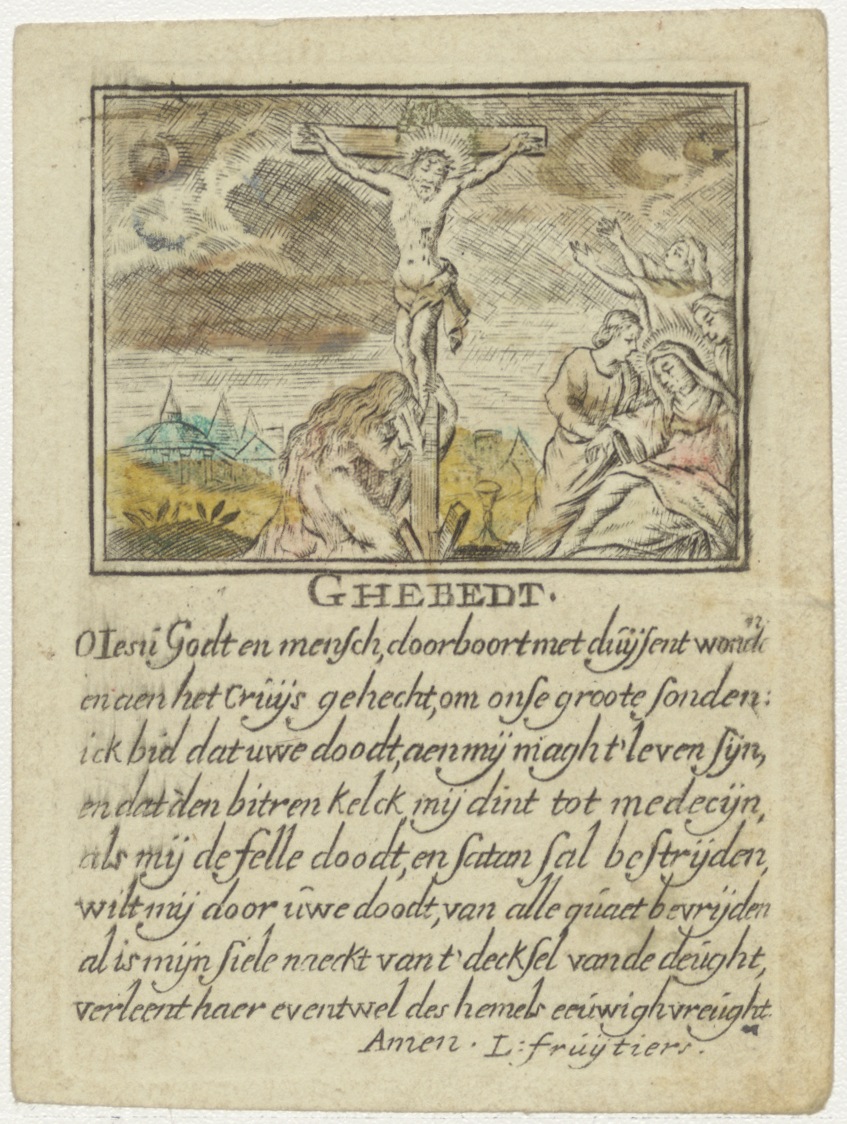 GHEBEDT.
O Iesu Godt en mensch, doorboort met duÿsent wonde
en aen het Cruÿs gehecht, om onse groote sonden:
ick bid dat uwe doodt, aen mij magh t'leven sijn,
en dat den bitren kelck, mij dint tot medecijn,
als mij de felle doodt, en satan sal bestrijden,
wilt mij door uwe doodt, van alle quaet bevrijden
al is mijn siele naeckt van t' decksel van de deught,
verleent haer eventwel des hemels eeuwigh vreught
Amen. L: fruÿtiers.